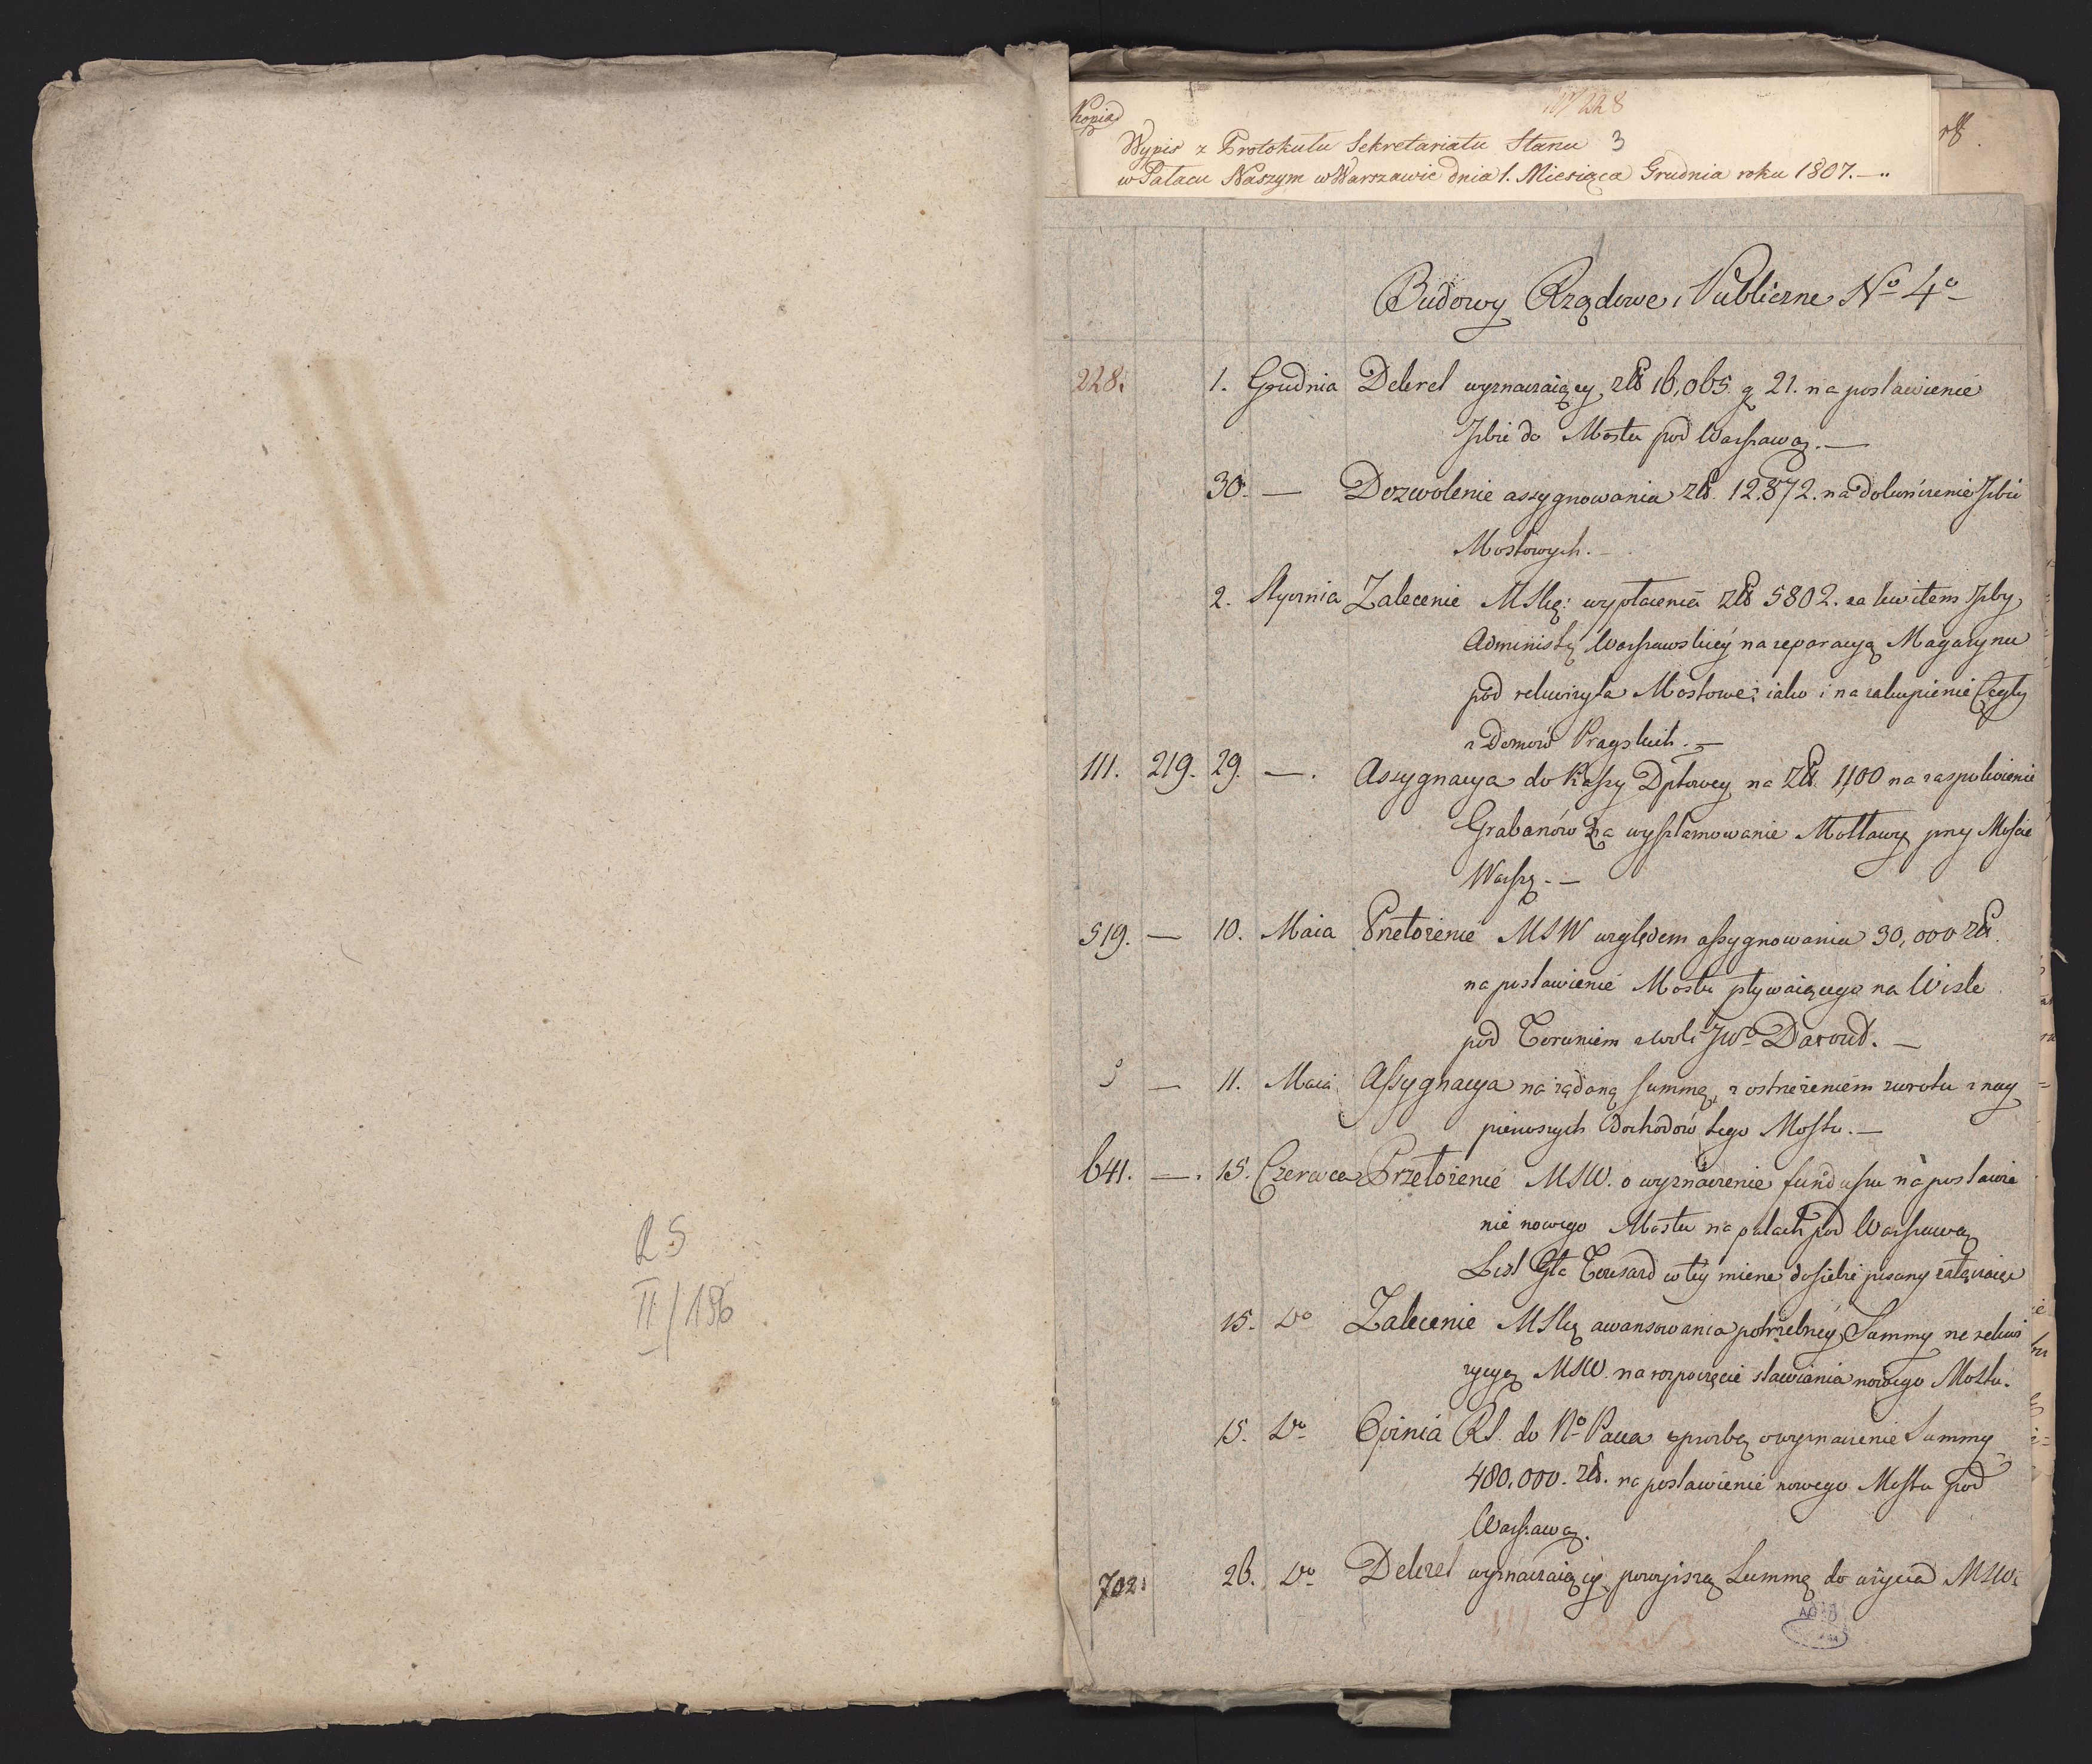 RS
II/186
Kopia
107/228
Wypis z Protokułu Sekretariatu Stanu 3
w Pałacu Naszym w Warszawie dnia 1. Miesiąca Grudnia roku 1807.
Budowy Rządowe i Publiczne No 4o
228. 1. Grudnia Dekret wyznaczaiący złł 16,065 g 21. na postawienie
Izbic do Mostu pod Warszawą. —
30. — Dozwolenie assygnowania złł. 12.872. na dokończenie Izbic
Mostowych. —
2. Stycznia Zalecenie MSkę: wypłacenia złł 5802. za kwitem Izby
Administ. Warszawskiey na reparacyą Magazynu
pod rekwizyta Mostowe; iako i na zakupienie Cegły
z Domów Pragskich. —
111. 219. 29. — . Assygnacya do Kassy Dptowey na Złł. 1,100 na zaspokoienie
Grabanów za wyszlamowanie Mottawy przy Moście
Warsz. —
519. — 10. Maia Przełożenie MSW względem assygnowania 30,000 złł.
na postawienie Mostu pływaiącego na Wiśle
pod Toruniem z woli JWo Davoud. —
— 11. Maia Assygnacya na żądaną summę, z ostrzeżeniem zwrotu z nay
pierwszych Dochodów tego Mostu. —
641. — . 15. Czerwca Przełożenie MSW. o wyznaczenie funduszu na postawie
nie nowego Mostu na palach pod Warszawą
List Gła w tey mierze do siebie pisany załączaiąc
15. Do Zalecenie MSkę awansowania potrzebney Summy na rekwi
zycyą MSW. na rozpoczęcie stawiania nowego Mostu.
15. Do Opinia RS. do No Pana z prośbą o wyznaczenie Summy
480,000. złł. na postawienie nowego Mostu pod
Warszawą.
702. 26. Do Dekret wyznaczaiący powyższą Summę do użycia MSW.
AGAD